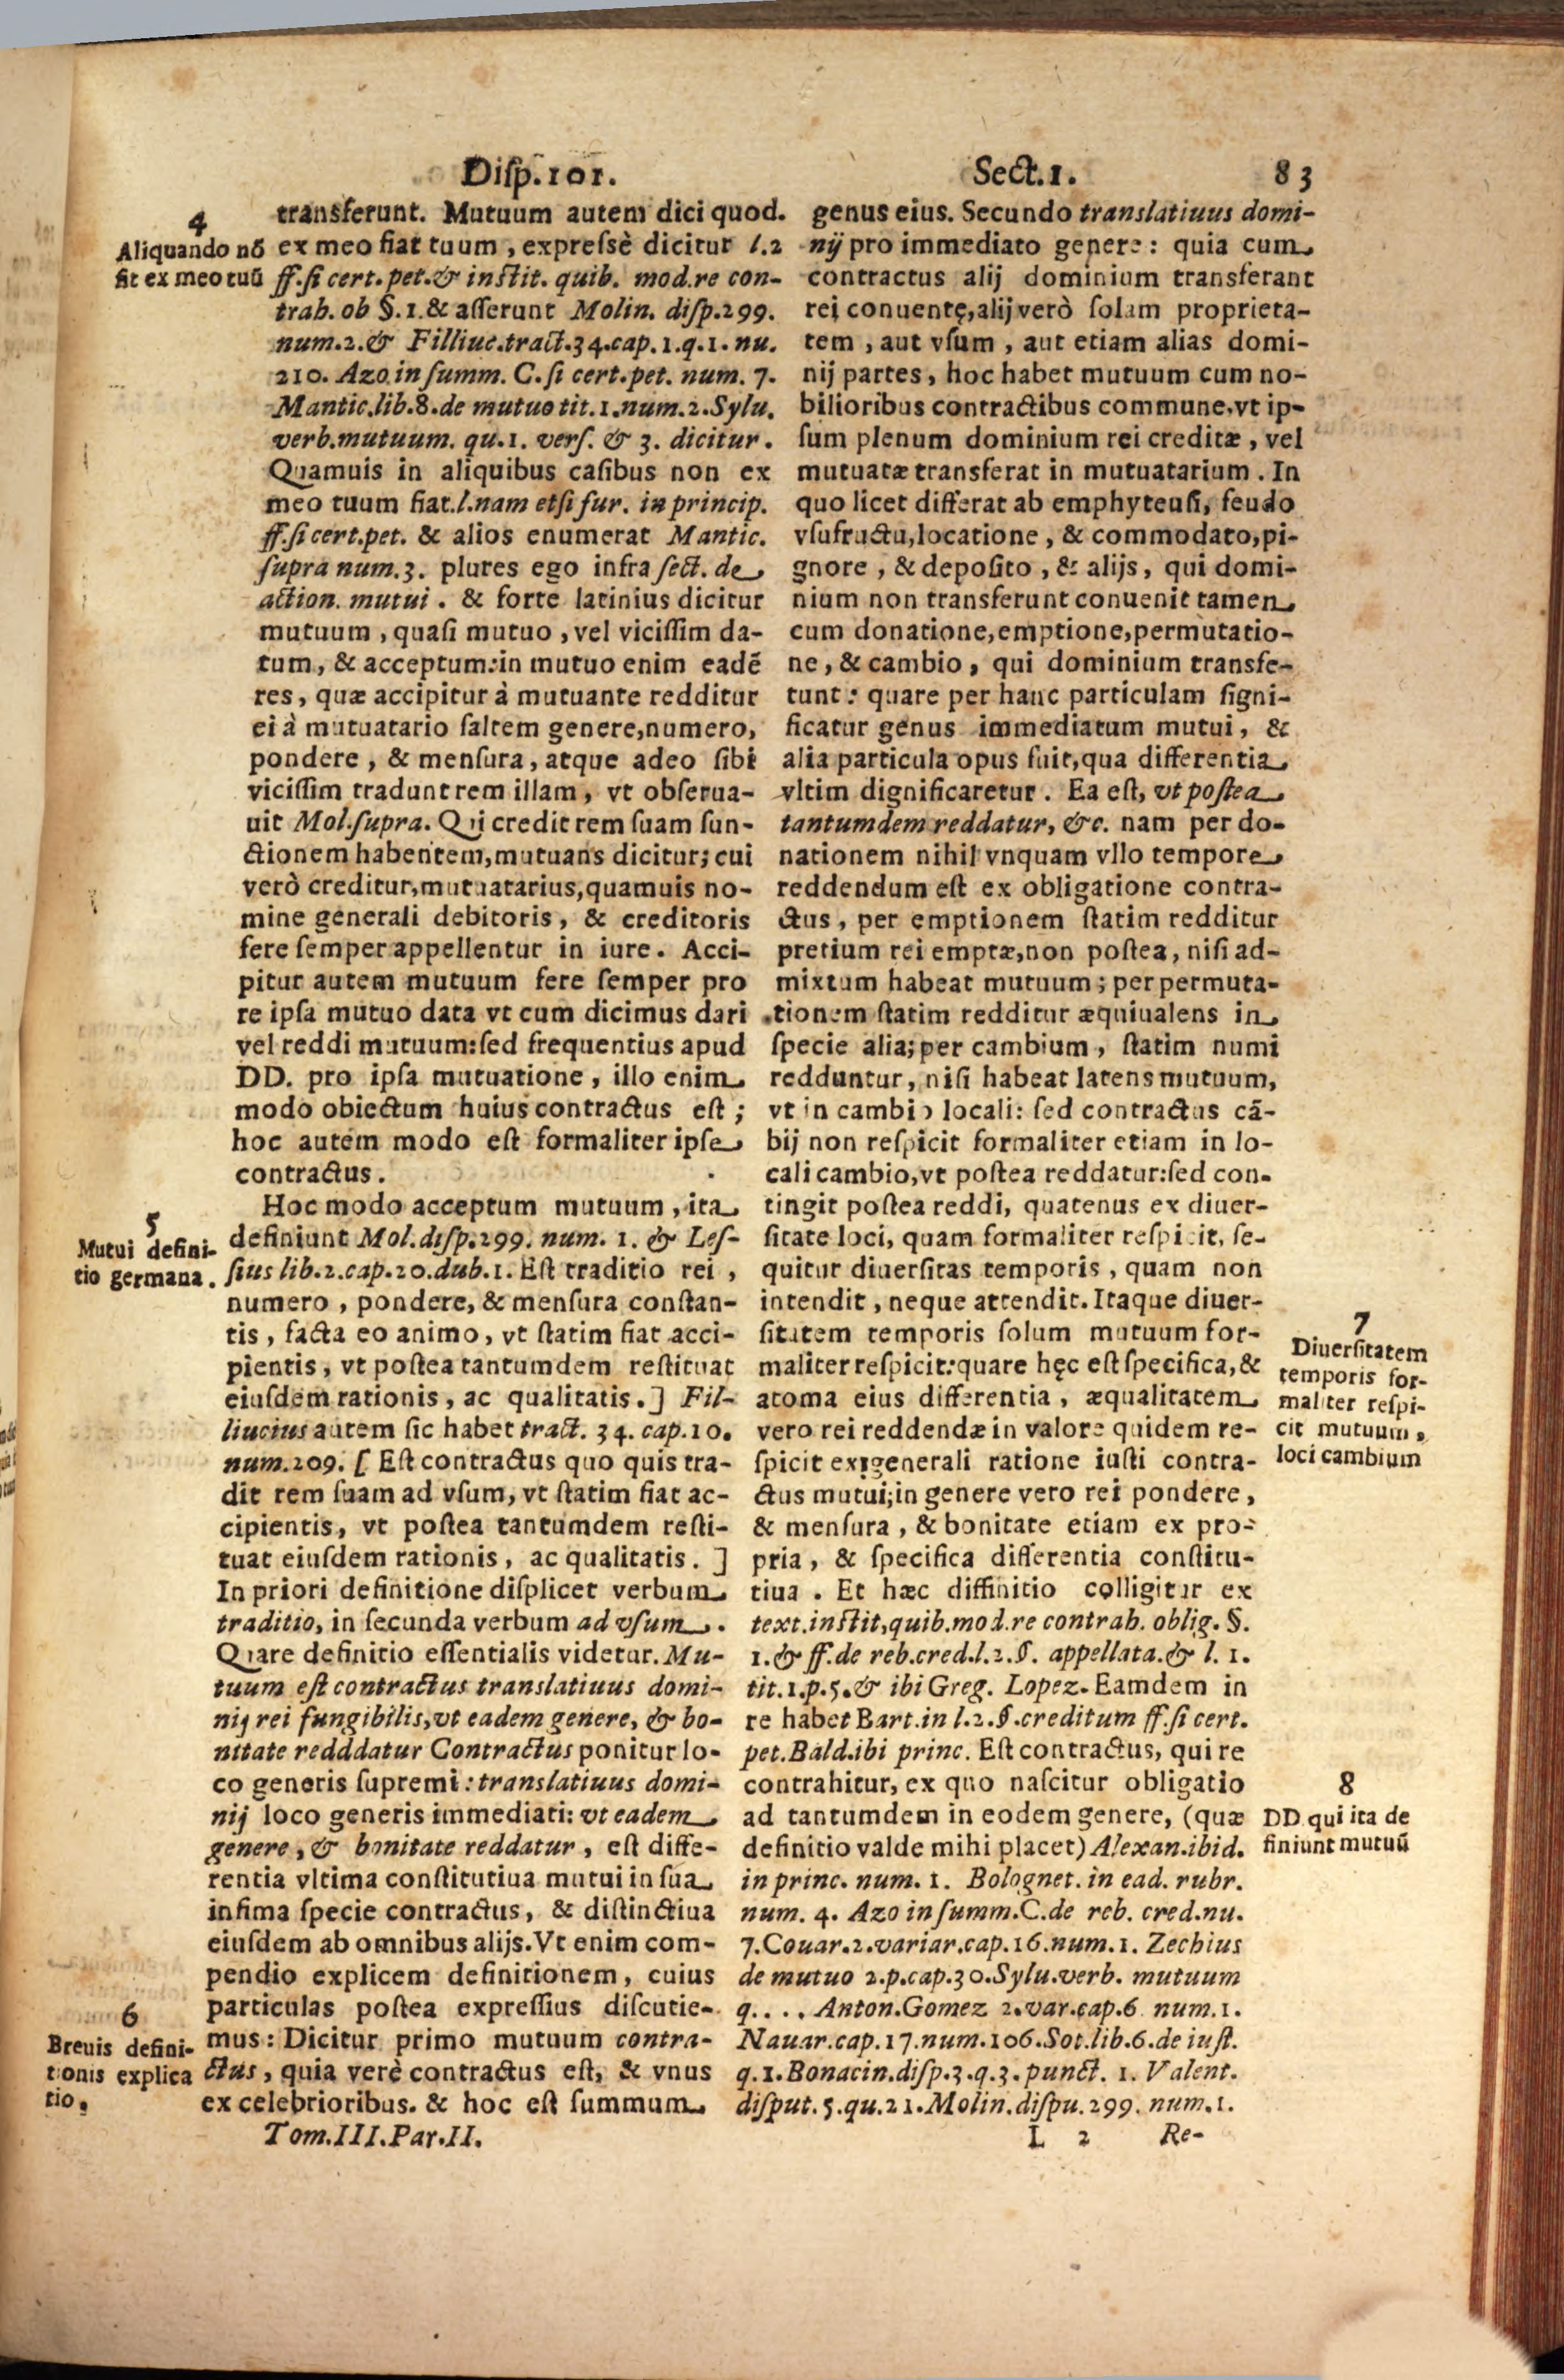 Diſp.101. Sect.1. 83
4
Aliquando nõ
fit ex meo tuũ
transferunt. Mutuum autem dici quod.
ex meo fiat tuum, expreſsè dicitur l.2
ff.ſi cert.pet.& inſtit. quib. mod.re con-
trah. ob §.1.& aſſerunt Molin. diſp.299.
num.2.& Filliuc.tract.34.cap.1.q.1.nu.
210. Azo.in ſumm. C.ſi cert.pet. num. 7.
Mantic.lib.8.de mutuo tit.1.num.2.Sylu.
verb.mutuum. qu.1. verſ. & 3. dicitur.
Quamuis in aliquibus caſibus non ex
meo tuum fiat.l.nam etſi fur. in princip.
ff.ſi cert.pet. & alios enumerat Mantic.
ſupra num.3. plures ego infra ſect. de
action. mutui. & forte latinius dicitur
mutuum, quaſi mutuo, vel viciſſim da-
tum, & acceptum:in mutuo enim eadẽ
res, quæ accipitur à mutuante redditur
ei à mutuatario ſaltem genere,numero,
pondere, & menſura, atque adeo ſibi
viciſſim tradunt rem illam, vt obſerua-
uit Mol.ſupra. Qui credit rem ſuam fun-
ctionem habentem,mutuans dicitur; cui
verò creditur,mutuatarius,quamuis no-
mine generali debitoris, & creditoris
fere ſemper appellentur in iure. Acci-
pitur autem mutuum fere ſemper pro
re ipſa mutuo data vt cum dicimus dari
vel reddi mutuum:ſed frequentius apud
DD. pro ipſa mutuatione, illo enim
modo obiectum huius contractus eſt;
hoc autem modo eſt formaliter ipſe
contractus.
5
Mutui defini-
tio germana.
Hoc modo acceptum mutuum, ita
definiunt Mol.diſp.299. num. 1. & Leſ-
ſius lib.2.cap.20.dub.1. Eſt traditio rei,
numero, pondere, & menſura conſtan-
tis, facta eo animo, vt ſtatim fiat acci-
pientis, vt poſtea tantumdem reſtituat
eiuſdem rationis, ac qualitatis.] Fil-
liucius autem ſic habet tract. 34. cap.10.
num.209. [ Eſt contractus quo quis tra-
dit rem ſuam ad vſum, vt ſtatim fiat ac-
cipientis, vt poſtea tantumdem reſti-
tuat eiuſdem rationis, ac qualitatis. ]
In priori definitione diſplicet verbum
traditio, in ſecunda verbum ad vſum.
Quare definitio eſſentialis videtur. Mu-
tuum eſt contractus translatiuus domi-
nij rei fungibilis,vt eadem genere, & bo-
nitate redddatur Contractus ponitur lo-
co generis ſupremi: translatiuus domi-
nij loco generis immediati: vt eadem
genere, & bonitate reddatur, eſt diffe-
rentia vltima conſtitutiua mutui in ſua
infima ſpecie contractus, & diſtinctiua
eiuſdem ab omnibus alijs.Vt enim com-
pendio explicem definitionem, cuius
6
Breuis defini-
tionis explica
tio.
particulas poſtea expreſſius diſcutie-
mus: Dicitur primo mutuum contra-
ctus, quia verè contractus eſt, & vnus
ex celebrioribus. & hoc eſt ſummum
Tom.III.Par.II.
genus eius. Secundo translatiuus domi-
nij pro immediato genere: quia cum
contractus alij dominium transferant
rei conuentę,alij verò ſolam proprieta-
tem, aut vſum, aut etiam alias domi-
nij partes, hoc habet mutuum cum no-
bilioribus contractibus commune,vt ip-
ſum plenum dominium rei creditæ, vel
mutuatæ transferat in mutuatarium. In
quo licet differat ab emphyteuſi, feudo
vſufructu,locatione, & commodato,pi-
gnore, & depoſito, & alijs, qui domi-
nium non transferunt conuenit tamen
cum donatione,emptione,permutatio-
ne, & cambio, qui dominium transfe-
tunt: quare per hanc particulam ſigni-
ficatur genus immediatum mutui, &
alia particula opus fuit,qua differentia
vltim dignificaretur. Ea eſt, vt poſtea
tantumdem reddatur, &c. nam per do-
nationem nihil vnquam vllo tempore
reddendum eſt ex obligatione contra-
ctus, per emptionem ſtatim redditur
pretium rei emptæ,non poſtea, niſi ad-
mixtum habeat mutuum; per permuta-
tionem ſtatim redditur æquiualens in
ſpecie alia; per cambium, ſtatim numi
redduntur, niſi habeat latens mutuum,
vt in cambio locali: ſed contractus cã-
bij non reſpicit formaliter etiam in lo-
cali cambio,vt poſtea reddatur:ſed con-
tingit poſtea reddi, quatenus ex diuer-
ſitate loci, quam formaliter reſpicit, ſe-
quitur diuerſitas temporis, quam non
intendit, neque attendit. Itaque diuer-
ſitatem temporis ſolum mutuum for-
maliter reſpicit:quare hęc eſt ſpecifica,&
atoma eius differentia, æqualitatem
vero rei reddendæ in valore quidem re-
ſpicit ex generali ratione iuſti contra-
ctus mutui;in genere vero rei pondere,
& menſura, & bonitate etiam ex pro-
pria, & ſpecifica differentia conſtitu-
tiua. Et hæc diffinitio colligitur ex
text.inſtit,quib.mod.re contrah. oblig. §.
1.& ff.de reb.cred.l.2.§. appellata.& l. 1.
tit.1.p.5.& ibi Greg. Lopez. Eamdem in
re habet Bart.in l.2.§.creditum ff.ſi cert.
pet.Bald.ibi princ. Eſt contractus, qui re
contrahitur, ex quo naſcitur obligatio
ad tantumdem in eodem genere, (quæ
definitio valde mihi placet) Alexan.ibid.
in princ. num. 1. Bolognet. in ead. rubr.
num. 4. Azo in ſumm.C.de reb. cred.nu.
7.Couar.2.variar.cap.16.num.1. Zechius
de mutuo 2.p.cap.30.Sylu.verb. mutuum
q.... Anton.Gomez 2.var.cap.6 num.1.
Nauar.cap.17.num.106.Sot.lib.6.de iuſt.
q.1.Bonacin.diſp.3.q.3.punct. 1. Valent.
diſput.5.qu.21.Molin.diſpu.299. num.1.
7
Diuerſitatem
temporis for-
maliter reſpi-
cit mutuum,
loci cambium
8
DD qui ita de
finiunt mutuũ
L 2 Re-